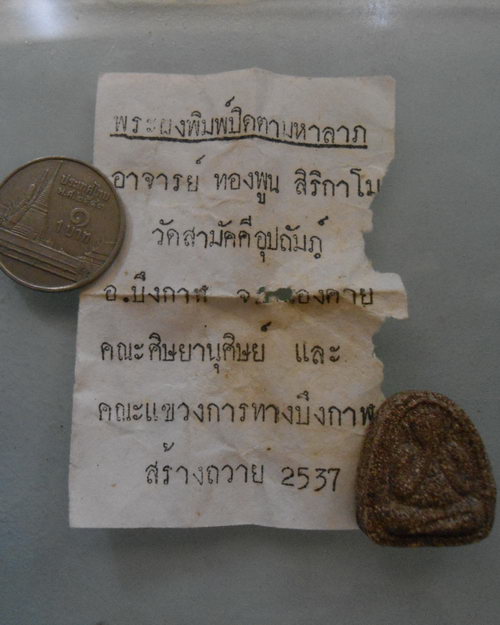 พระผงพิมพ์ปิดตามหาลาภ
อาจารย์ ทองพูน สิริกาโม
วัดสามัคคีอุปถัมภ์
อ.บึงกาฬ
คณะศิษยานุศิษย์ และ
คณะแขวงการทางบึงกาฬ
สร้างถวาย 2537
ประเทศไทย
๑
บาท